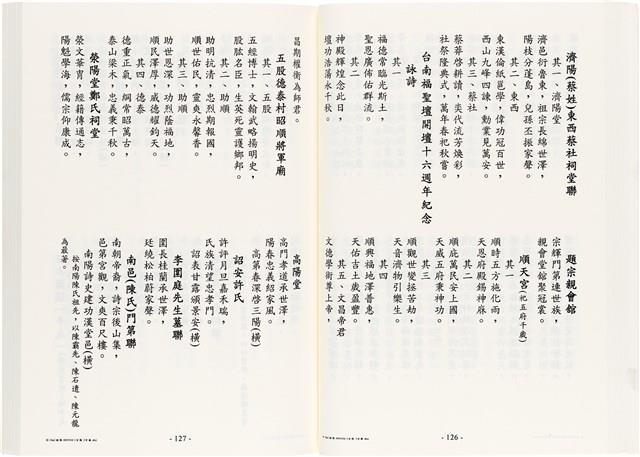 濟陽(蔡姓)東西蔡社祠堂聯
其一、濟陽堂
濟邑衍魯東，祖宗長綿世澤，
陽枝分蓬島，兒孫丕振家聲。
其二、東西
東漢倫紙邕學，偉功冠百世，
西山九峰四諫，勳業見萬安。
其三、蔡社
蔡莽啓耕讀，奕代流芳煥彩，
社祭隆典式，萬年春祀秋嘗。
台南福聖壇開壇十六週年紀念
詠詩
其一
福德常臨光斯土，
聖恩廣佈佑群流。
神殿輝煌念此日，
壇功浩蕩永千秋。
題宗親會館
宗輝門第連世族，
親會堂館聚冠裳。
順天宮(祀五府千歲)
其一
順時五方施化雨，
天恩府殿錫神庥。
其二
順庇萬民安上國，
天威五府秉神功。
其三
順觀世變拯苦劫，
天音濟物引樂生。
其四
順興福地澤普惠，
天佑吉士歲盈豐。
其五、文昌帝君
文德學術尊上帝，
- 126 -
昌期權衡為師君。
五股德泰村昭順將軍廟
其一、五股
五經博士，文韜武略揚明史，
股肱名臣，生英死靈護鄉邦。
其二、助順
助明抗清，忠烈期報國，
順世佑民，靈爽永馨香。
其三、助順
助世恩深，功烈蔭福地，
順民澤厚，威德耀鈞天。
其四、德泰
德重正氣，綱常昭萬古，
泰山梁木，忠義秉千秋。
滎陽堂鄭氏祠堂
滎文華冑，經籍傳通志，
陽魁學海，儒宗仰康成。
高陽堂
高門孝道承世澤，
陽春忠義紹家風。
高第春深啓三陽(橫)
詔安許氏
許許月旦嘉禾瑞，
氏族清望忠孝門。
詔表甘露頌景安(橫)
李圍庭先生墓聯
圍長桂蘭承世澤，
廷繞松柏蔚家聲。
南邑(陳氏)門第聯
南朝帝裔，詩宗後山集，
邑第宮觀，文爽百尺樓。
南陽詩史建功漢堂邑(橫)
按南陽陳氏祖先，以陳霸先、陳石遺、陳元龍
為最著。
- 127 -